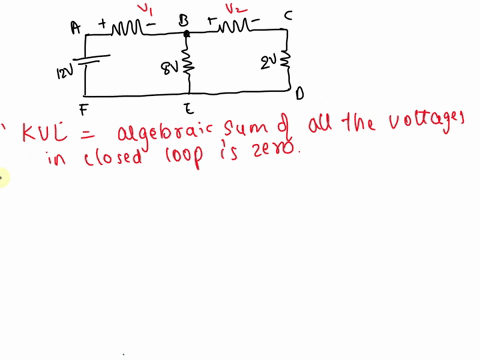 V1 V2
A + - B + - C
12V 8V 2V
F E D
KVL = algebraic sum of all the voltages
in closed loop is zero.